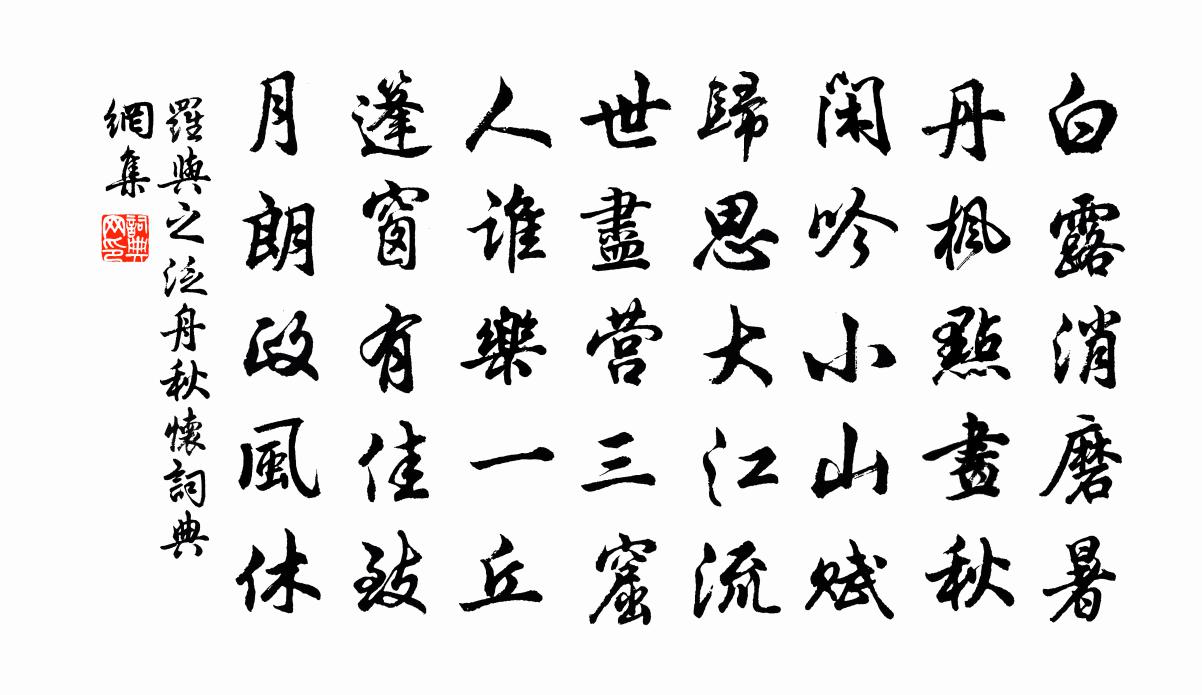 白露消磨暑
丹楓點畫秋
閑吟小山賦
歸思大江流
世盡营三窟
人誰樂一丘
蓬窗有佳致
月朗政風休
羅與之泛舟秋懷詞典
網集
詞典
网印